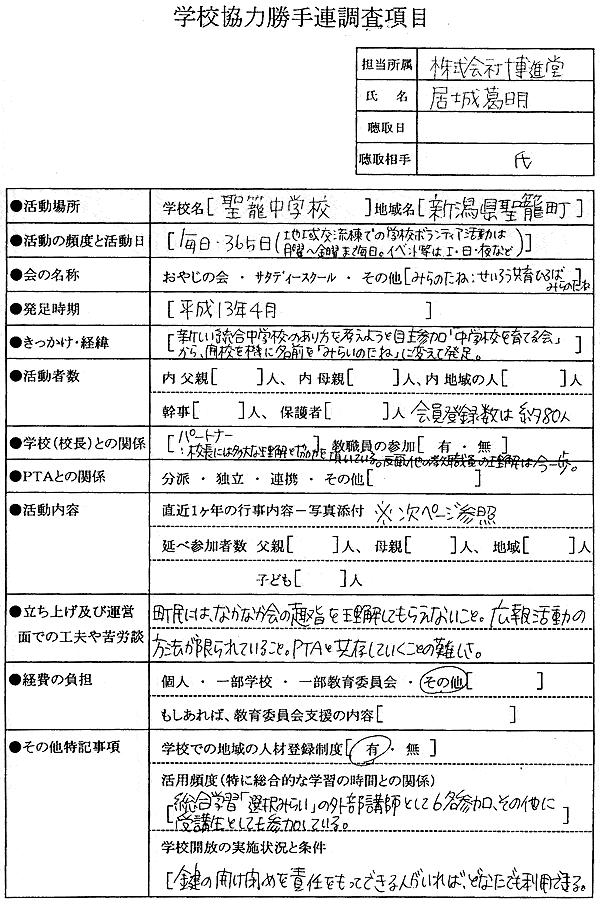 学校協力勝手連調査項目
担当所属 株式会社博進堂
氏 名 居城葛明
聴取日
聴取相手 氏
●活動場所 学校名[聖籠中学校 ]地域名[新潟県聖籠町]
●活動の頻度と活動日 [毎日・365日(地域交流棟での学校ボランティア活動は
月曜～金曜まで毎日。イベント等は、土・日・夜など)]
●会の名称 おやじの会 ・ サタディースクール ・ その他[みらいのたね:せいろう共育ひろば
みらいのたね
●発足時期 [平成13年4月 ]
●きっかけ・経緯 [新しい統合中学校のあり方を考えようと自主参加「中学校を育てる会」
から、開校を機に名前を「みらいのたね」に変えて発足。 ]
●活動者数 内 父親[ ]人、 内 母親[ ]人、内 地域の人[ ]人
幹事[ ]人、 保護者[ ]人 会員登録数は約80人
●学校(校長)との関係 [パートナー ] 教職員の参加[ 有 ・ 無 ]
:校長には多大な理解と協力を頂いている。反面、他の教職員の理解は今一歩。
●PTAとの関係 分派 ・ 独立 ・ 連携 ・ その他[ ]
●活動内容 直近1ヶ年の行事内容－写真添付 ※次ページ参照
延べ参加者数 父親[ ]人、 母親[ ]人、 地域[ ]人
子ども[ ]人
●立ち上げ及び運営 町民には、なかなか会の趣旨を理解してもらえないこと。広報活動の
面での工夫や苦労談 方法が限られていること。PTAと共存していくことの難しさ。
●経費の負担 個人 ・ 一部学校 ・ 一部教育委員会 ・ その他[ ]
もしあれば、教育委員会支援の内容[ ]
●その他特記事項 学校での地域の人材登録制度[ 有 ・ 無 ]
活用頻度(特に総合的な学習の時間との関係)
[総合学習「選択みらい」の外部講師として6名参加、その他に
受講生としても参加している。 ]
学校開放の実施状況と条件
[鍵の開け閉めを責任をもってできる人がいれば、どなたでも利用できる。